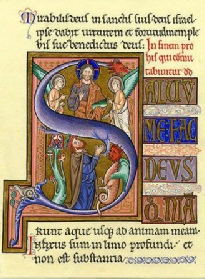 Mirabilis deus in sanctis suis deus israel
ipse dabit uirtutem et fortitudinem ple
bis sue benedictus deus:
In finem pro
his qui
tabuntur dd
SALUU
ME FAC
DEUS
QM
trauerunt aque usq; ad animam meam
Infixus sum in limo profundi et
non est substantia